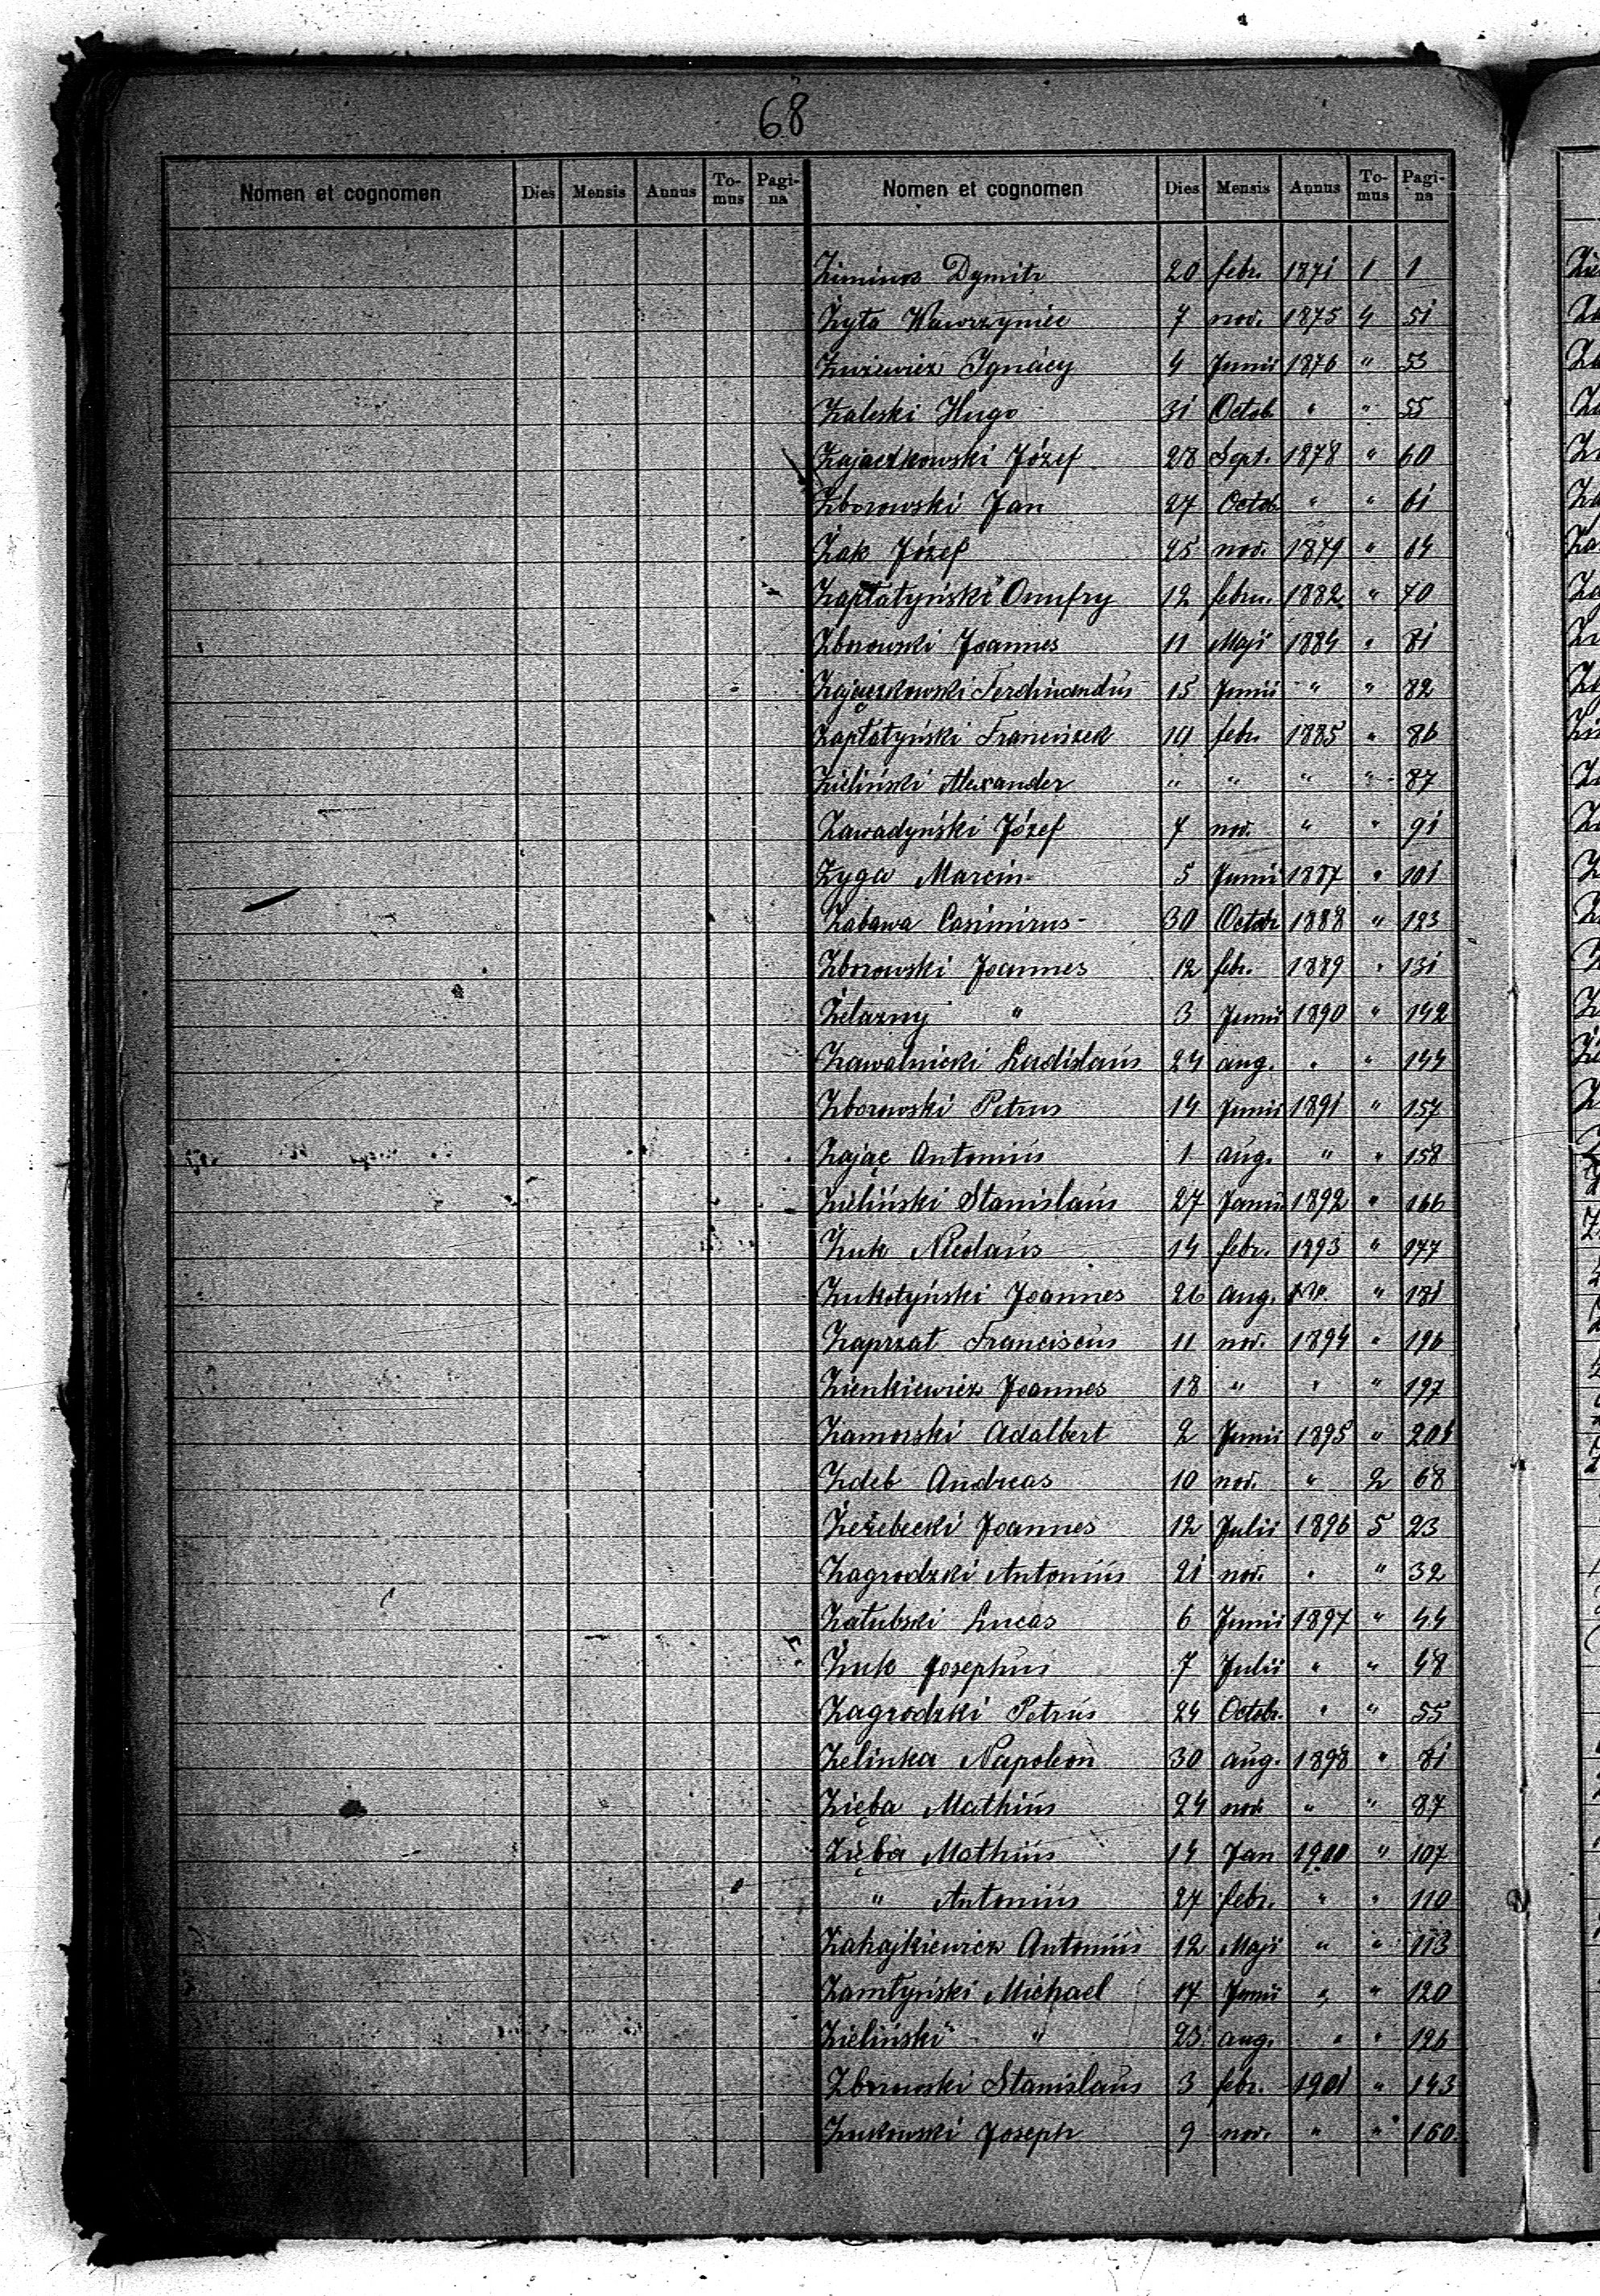 68
Nomen et cognomen Dies Mensis Annus To-mus Pagi-na Nomen et cognomen Dies Mensis Annus To-mus Pagi-na
Dymitr 20 febr. 1871 1 1
Żyta Wawrzyniec 7 nov. 1875 4 51
Ignácy 4 Junii 1876 " 53
Zaleski Hugo 31 Octob. " " 55
Zajaczkowski Józef 28 Sept. 1878 " 60
Zborowski Jan 27 Octob. " " 61
Żak Józef 25 nov. 1879 " 64
Zapłatyński Onufry 12 febru. 1882 " 70
Zborowski Joannes 11 Maji 1884 " 81
Zajączkowski Ferdinandus 15 Junii " " 82
Zapłatyński Franciszek 14 febr. 1885 " 86
Zieliński Alexander " " " " 87
Zawadyński Józef 7 nov. " " 91
Zyga Marcin 5 Junii 1887 " 101
Zabawa Casimirus 30 Octobr 1888 " 123
Zborowski Joannes 12 febr. 1889 " 131
Żelazny " 3 Junii 1890 " 142
Zawalnicki Ladislaus 24 aug. " " 144
Zborowski Petrus 14 Junii 1891 " 157
Zając Antonius 1 aug. " " 158
Zieliński Stanislaus 27 1892 " 166
Żuk Nicolaus 14 febr. 1893 " 177
Żukotyński Joannes 26 aug. " 181
Zaprzat Franciscus 11 nov. 1894 " 196
Zienkiewicz Joannes 18 " " " 197
Zamorski Adalbert 2 Junii 1895 " 201
Zdeb Andreas 10 nov. " 2 68
Żeżebecki Joannes 12 Julii 1896 5 23
Zagrodzki Antonius 21 nov. " " 32
Załubski Lucas 6 Junii 1897 " 44
Żuk Josephus 7 Julii " " 48
Zagrodzki Petrus 24 Octobr. " " 55
Zelinka Napoleon 30 aug. 1898 " 81
Zięba Mathius 24 nov. " " 87
Zięba Mathius 14 Jan 1900 " 107
" Antonius 27 febr. " " 110
Zahajkiewicz Antonius 12 Maji " " 113
Zamłyński Michael 17 Junii " " 120
Zieliński " 23 aug. " " 126
Zborowski Stanislaus 3 febr. 1901 " 143
Żukowski Joseph 9 nov. " " 160